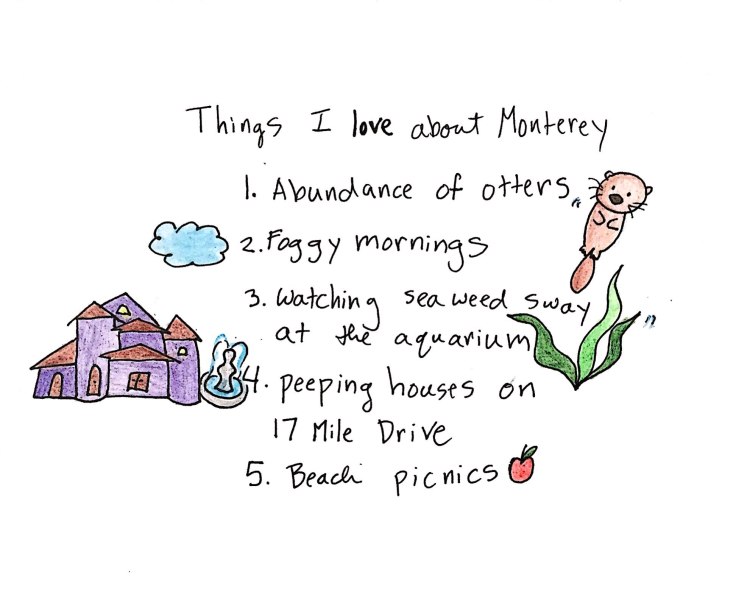 Things I love about Monterey
1. Abundance of otters
2. Foggy mornings
3. Watching seaweed sway
at the aquarium
4. peeping houses on
17 Mile Drive
5. Beach picnics